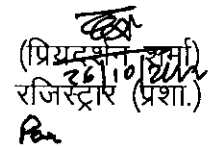 (प्रियदर्शन शर्मा)
26/10/2012
रजिस्ट्रार (प्रशा.)